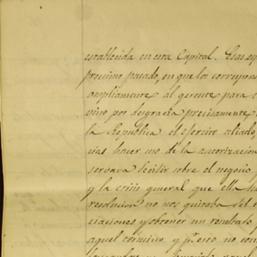 establecida en esta Capital. Esas
proximo pasado, en que los correspon
ampliamente al gerente para
vino por desgracia precisamente
la Republica el ejercito aliado,
cias hacer uso de la autorizacion
servara decidir sobre el negocio
y la crisis general que ella
resolucion no nos quitaba del
ciaciones y obtener un resultado
aquel camino, y p<sup>r</sup> eso no con